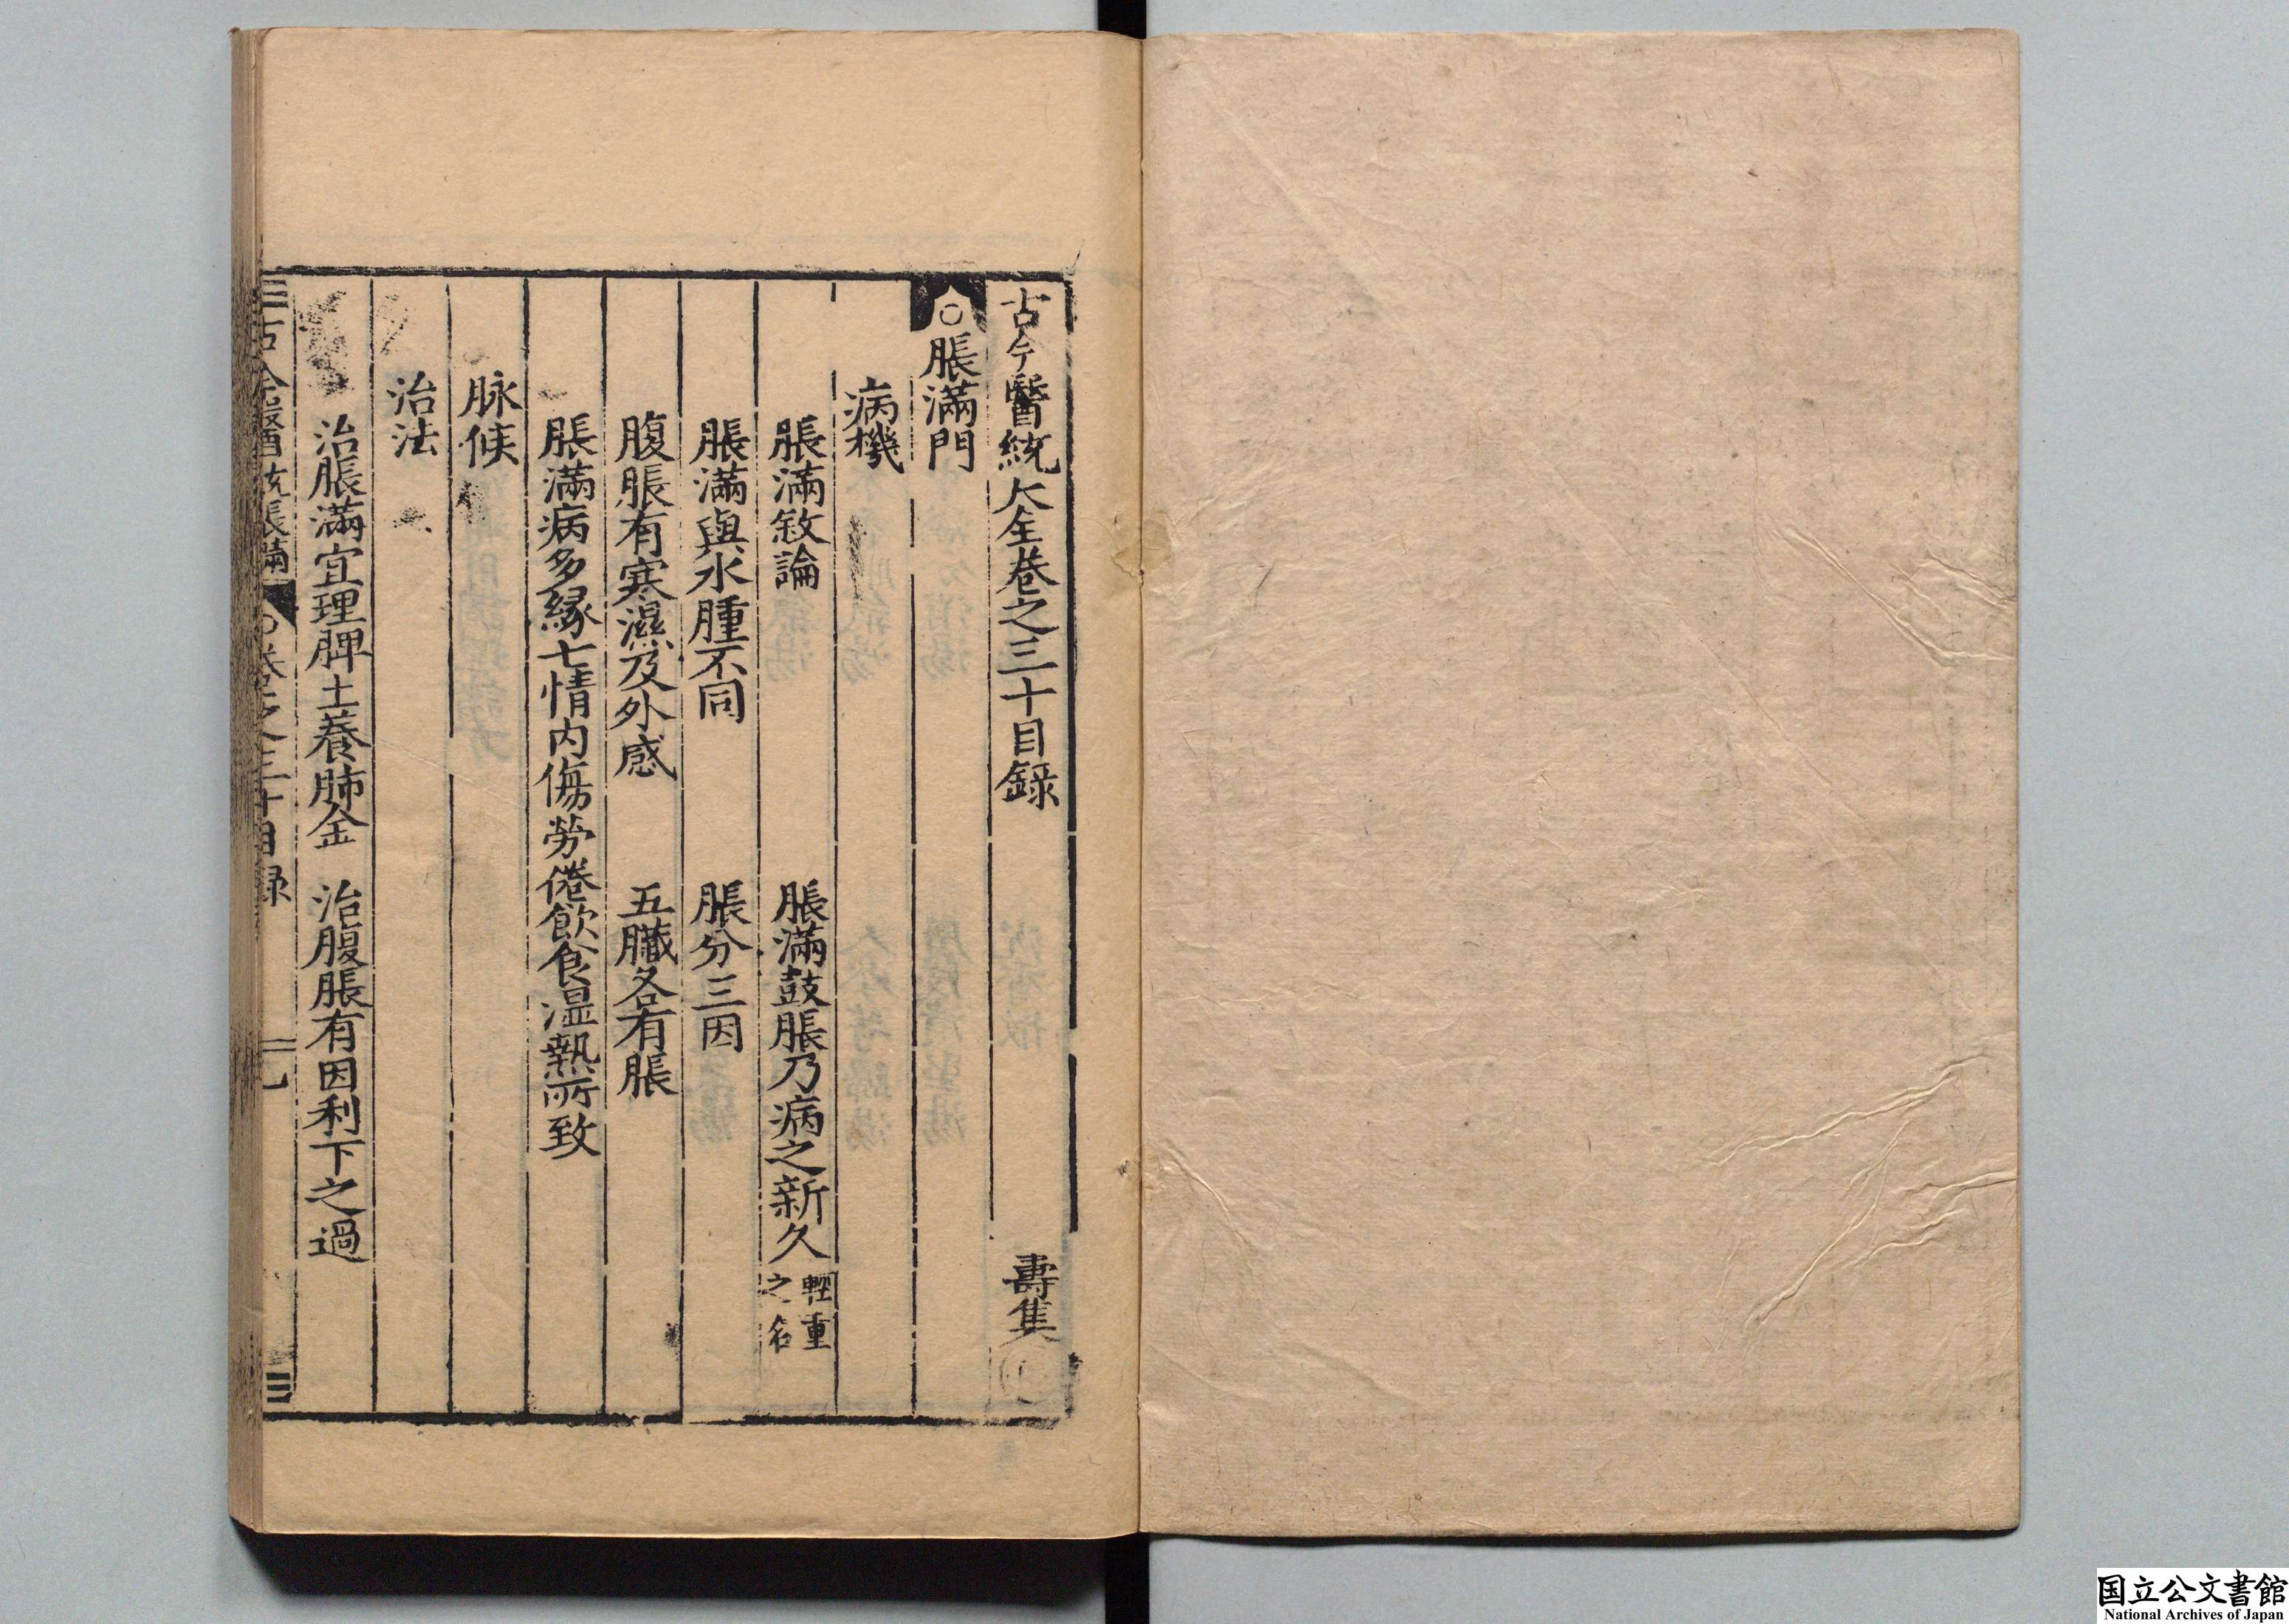 古今醫統大全卷之三十目録　壽集
○脹滿門
病機
脹滿敘論　脹滿鼓脹乃病之新久輕重之名
脹滿與水腫不同　脹分三因
腹脹有寒濕及外感　五臟各有脹
脹滿病多緣七情内傷勞倦飲食温熱所致
脉候
治法
治脹滿宜理脾土養肺金　治腹脹有因利下之過
古今醫統脹滿　○卷之三十目録　一
国立公文書館
National Archives of Japan